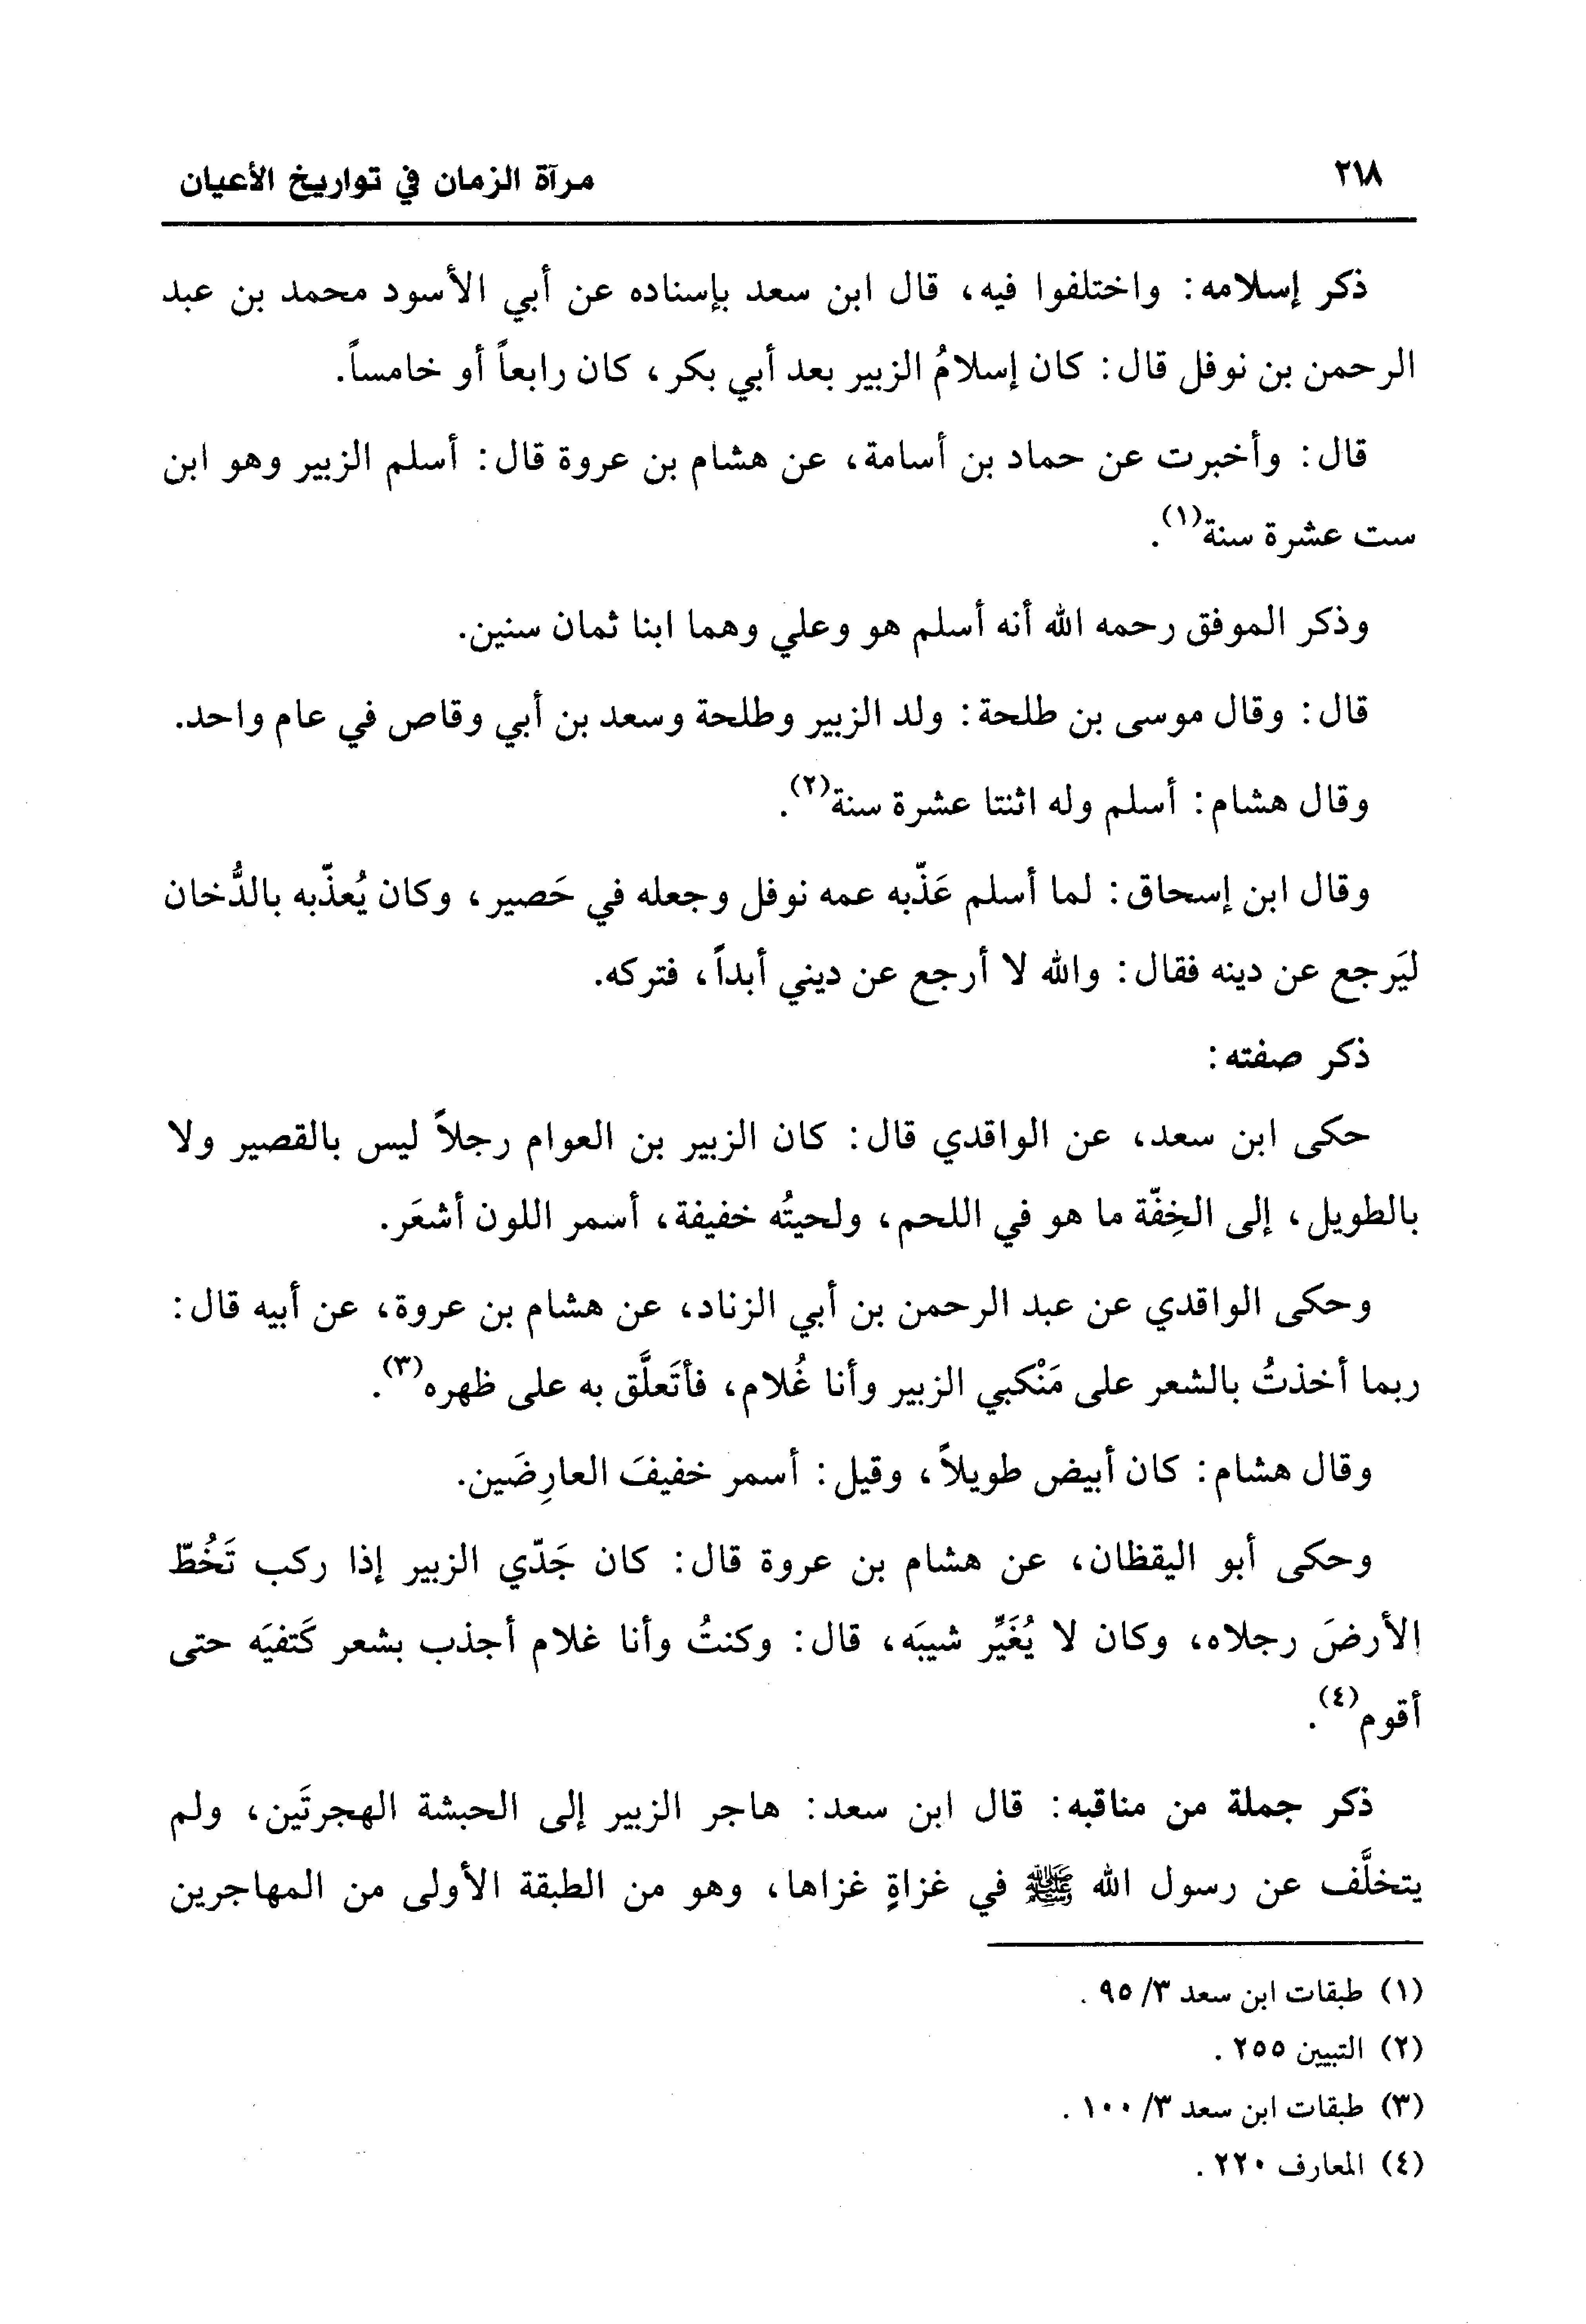 ٢١٨
مرآة الزمان في تواريخ الأعيان
ذكر إسلامه: واختلفوا فيه، قال ابن سعد بإسناده عن أبي الأسود محمد بن عبد
الرحمن بن نوفل قال: كان إسلامُ الزبير بعد أبي بكر، كان رابعاً أو خامساً.
قال: وأخبرت عن حماد بن أسامة، عن هشام بن عروة قال: أسلم الزبير وهو ابن
ست عشرة سنة(١).
وذكر الموفق رحمه الله أنه أسلم هو وعلي وهما ابنا ثمان سنين.
قال: وقال موسى بن طلحة: ولد الزبير وطلحة وسعد بن أبي وقاص في عام واحد.
وقال هشام: أسلم وله اثنتا عشرة سنة(٢).
وقال ابن إسحاق: لما أسلم عَذّبه عمه نوفل وجعله في حَصير، وكان يُعذّبه بالدُّخان
ليَرجع عن دينه فقال: والله لا أرجع عن ديني أبداً، فتركه.
ذكر صفته:
حكى ابن سعد، عن الواقدي قال: كان الزبير بن العوام رجلاً ليس بالقصير ولا
بالطويل، إلى الخِفّة ما هو في اللحم، ولحيتُه خفيفة، أسمر اللون أشعَر.
وحكى الواقدي عن عبد الرحمن بن أبي الزناد، عن هشام بن عروة، عن أبيه قال:
ربما أخذتُ بالشعر على مَنْكبي الزبير وأنا غُلام، فأتَعلَّق به على ظهره(٣).
وقال هشام: كان أبيض طويلاً، وقيل: أسمر خفيفَ العارِضَين.
وحكى أبو اليقظان، عن هشام بن عروة قال: كان جَدّي الزبير إذا ركب تَخُطّ
الأرضَ رجلاه، وكان لا يُغَيِّر شيبَه، قال: وكنتُ وأنا غلام أجذب بشعر كَتفيَه حتى
أقوم(٤).
ذكر جملة من مناقبه: قال ابن سعد: هاجر الزبير إلى الحبشة الهجرتَين، ولم
يتخلَّف عن رسول الله ﷺ في غزاةٍ غزاها، وهو من الطبقة الأولى من المهاجرين
(١) طبقات ابن سعد ٣/ ٩٥ .
(٢) التبيين ٢٥٥ .
(٣) طبقات ابن سعد ٣/ ١٠٠ .
(٤) المعارف ٢٢٠ .